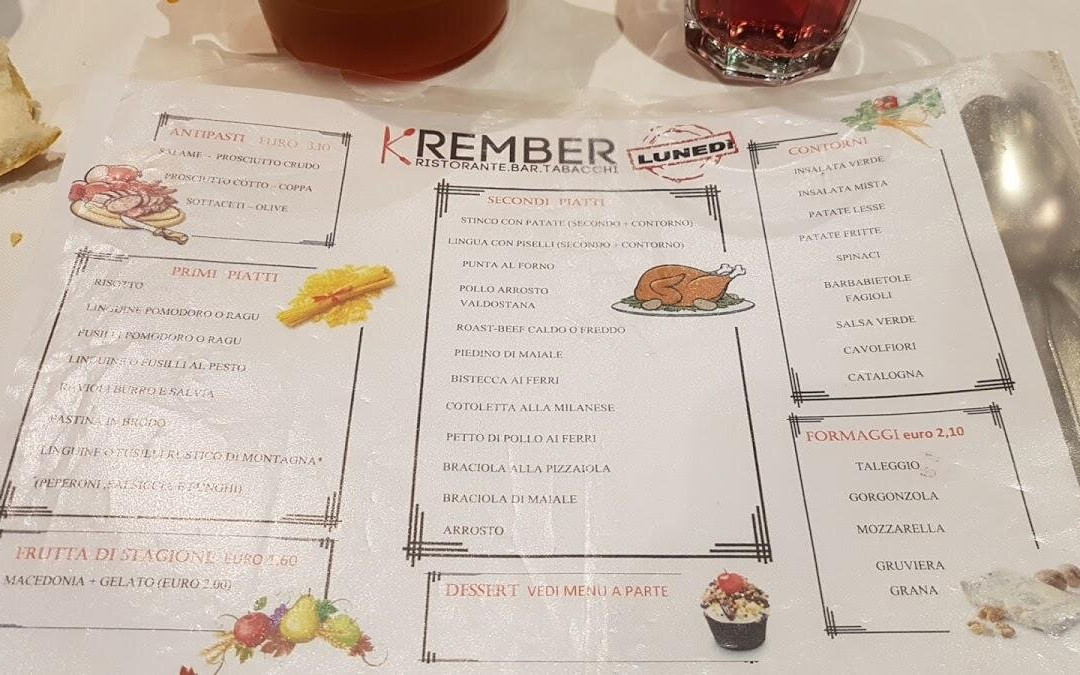 ANTIPASTI EURO 3,10
SALAME - PROSCIUTTO CRUDO
PROSCIUTTO COTTO - COPPA
SOTTACETI - OLIVE
PRIMI PIATTI
RISOTTO
LINGUINE POMODORO O RAGU
FUSILLI POMODORO O RAGU
LINGUINE O FUSILLI AL PESTO
RAVIOLI BURRO E SALVIA
PASTINA IN BRODO
LINGUINE O FUSILLI RUSTICO DI MONTAGNA*
(PEPERONI ,SALSICCIA E FUNGHI)
FRUTTA DI STAGIONE EURO 1,60
MACEDONIA + GELATO (EURO 2.00)
KREMBER
RISTORANTE.BAR.TABACCHI
LUNEDÌ
SECONDI PIATTI
STINCO CON PATATE (SECONDO + CONTORNO)
LINGUA CON PISELLI (SECONDO + CONTORNO)
PUNTA AL FORNO
POLLO ARROSTO
VALDOSTANA
ROAST-BEEF CALDO O FREDDO
PIEDINO DI MAIALE
BISTECCA AI FERRI
COTOLETTA ALLA MILANESE
PETTO DI POLLO AI FERRI
BRACIOLA ALLA PIZZAIOLA
BRACIOLA DI MAIALE
ARROSTO
DESSERT VEDI MENU A PARTE
CONTORNI
INSALATA VERDE
INSALATA MISTA
PATATE LESSE
PATATE FRITTE
SPINACI
BARBABIETOLE
FAGIOLI
SALSA VERDE
CAVOLFIORI
CATALOGNA
FORMAGGI euro 2,10
TALEGGIO
GORGONZOLA
MOZZARELLA
GRUVIERA
GRANA